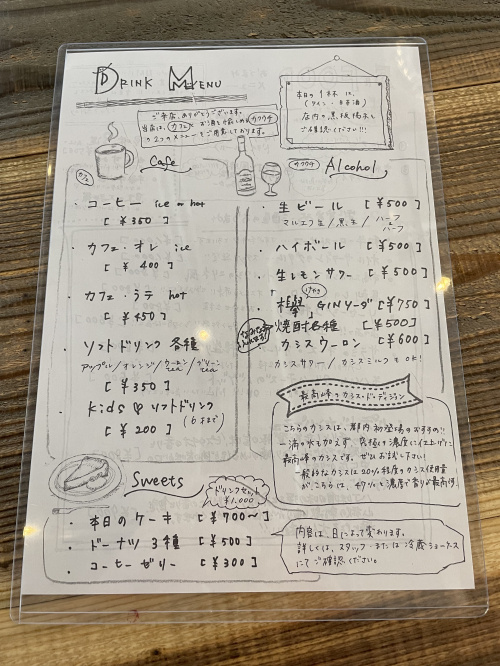 DRINK MENU
本日の1杯は、
(ワイン・日本酒)
店内の黒板掲示を
ご確認ください!!!
ご来店、ありがとうございます。
当店は、カフェとお酒を楽しめるカクウチ
の2つのメニューをご用意しております。
カフェ Cafe
・コーヒー ice or hot
[ ¥350 ]
・カフェ・オレ ice
[ ¥400 ]
・カフェ・ラテ hot
[ ¥450 ]
・ソフトドリンク 各種
アップル/オレンジ/ウーロンtea/グリーンtea
[ ¥350 ]
・kids ♡ ソフトドリンク
[ ¥200 ] (6才まで)
カクウチ Alcohol
・生ビール [ ¥500 ]
マルエフ生/黒生/ハーフハーフ
・ハイボール [ ¥500 ]
・生レモンサワー [ ¥500 ]
けやき
・「欅」GINソーダ [ ¥750 ]
焼酎各種 [ ¥500 ]
カシスウーロン [ ¥600 ]
カシスサワー/カシスミルクもOK!
最高峰のカシス・ド・ディジョン
こちらのカシスは、都内初登場のおすすめ!!
一滴の水も加えず、究極に濃厚に仕上げた
最高峰のカシスです。ぜひお試し下さい!
一般的なカシスは20%程度のカシス使用量
がこちらは、47%と濃厚で香りが最高!
Sweets
ドリンクセット
¥1,000
・本日のケーキ [ ¥700〜 ]
・ドーナツ 3種 [ ¥500 ]
・コーヒーゼリー [ ¥300 ]
内容は、日によって変わります。
詳しくは、スタッフ・または冷蔵ショーケース
にてご確認ください。